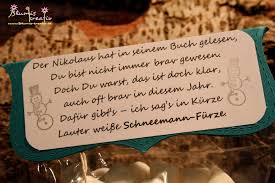 Blumis
kreativ
Der Nikolaus hat in seinem Buch gelesen,
Du bist nicht immer brav gewesen.
Doch Du warst, das ist doch klar,
auch oft brav in diesem Jahr.
Dafür gibt's – ich sag's in Kürze
Lauter weiße Schneemann-Fürze.